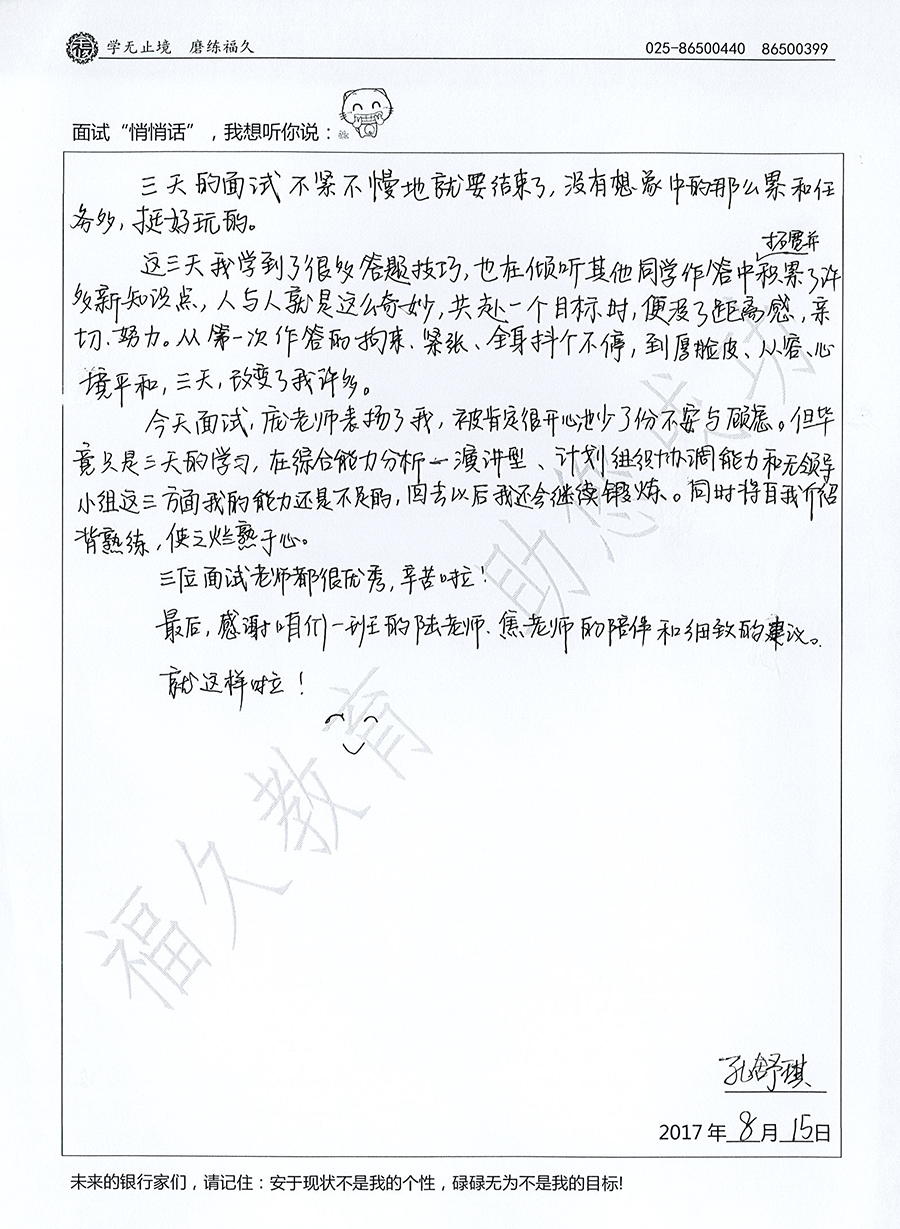 学无止境 磨练福久
025-86500440 86500399
面试“悄悄话”，我想听你说：
三天的面试不紧不慢地就要结束了，没有想象中的那么累和任
务多，挺好玩的。
拓宽并
这三天我学到了很多答题技巧，也在倾听其他同学作答中积累了许
多新知识点，人与人就是这么奇妙，共赴一个目标时，便没了距离感，亲
切、努力。从第一次作答的拘束、紧张、全身抖个不停，到厚脸皮、从容、心
境平和，三天，改变了我许多。
今天面试，庞老师表扬了我，被肯定很开心也少了份不安与顾虑。但毕
竟只是三天的学习，在综合能力分析一演讲型、计划组织协调能力和无领导
小组这三方面我的能力还是不足的，回去以后我还会继续锻炼、。同时将自我介绍
背熟练，使之烂熟于心。
三位面试老师都很优秀，辛苦啦！
最后，感谢咱们一班的陆老师、焦老师的陪伴和细致的建议。
就这样啦！
助您成功
福久教育
孔舒琪
2017年8月15日
未来的银行家们，请记住：安于现状不是我的个性，碌碌无为不是我的目标!